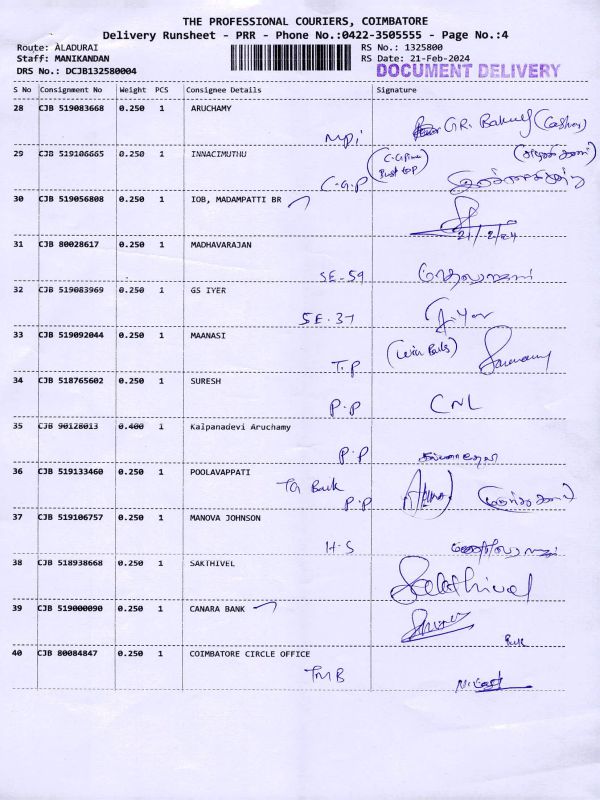 THE PROFESSIONAL COURIERS, COIMBATORE
Delivery Runsheet - PRR - Phone No.:0422-3505555 - Page No.:4
Route: ALADURAI RS No.: 1325800
Staff: MANIKANDAN RS Date: 21-Feb-2024
DRS No.: DCJB132580004 DOCUMENT DELIVERY
S No Consignment No Weight PCS Consignee Details Signature
28 CJB 519083668 0.250 1 ARUCHAMY
G.R. (Cashier)
29 CJB 519106665 0.250 1 INNACIMUTHU
C.G.P
30 CJB 519056808 0.250 1 IOB, MADAMPATTI BR
21/2/24
31 CJB 80028617 0.250 1 MADHAVARAJAN
SE-59
32 CJB 519083969 0.250 1 GS IYER
SE-37
33 CJB 519092044 0.250 1 MAANASI
T.P
34 CJB 518765602 0.250 1 SURESH
P.P CNL
35 CJB 90128013 0.400 1 Kalpanadevi Aruchamy
P.P
36 CJB 519133460 0.250 1 POOLAVAPPATI
P.P
37 CJB 519106757 0.250 1 MANOVA JOHNSON
H-S
38 CJB 518938668 0.250 1 SAKTHIVEL
Sakthivel
39 CJB 519000090 0.250 1 CANARA BANK
40 CJB 80084847 0.250 1 COIMBATORE CIRCLE OFFICE
TMB